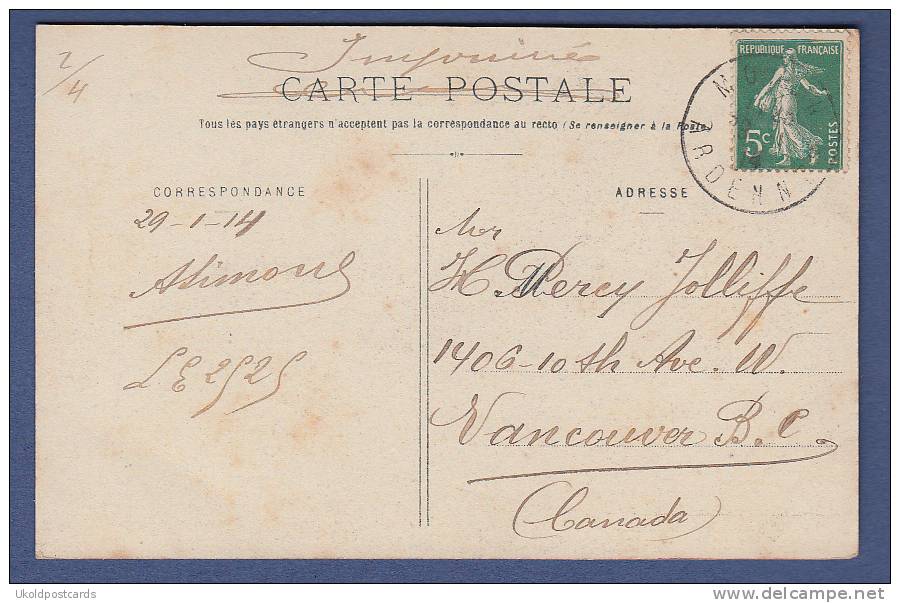 2/4
Imprimé
CARTE POSTALE
Tous les pays étrangers n'acceptent pas la correspondance au recto (Se renseigner à la Poste)
REPUBLIQUE FRANÇAISE
5c
POSTES
ARDENN
CORRESPONDANCE
ADRESSE
29-1-14
LE 2525
Mr
H. Percy Jolliffe
1406-10th Ave. W.
Vancouver B.C.
Canada
Ukoldpostcards
delcampe.net